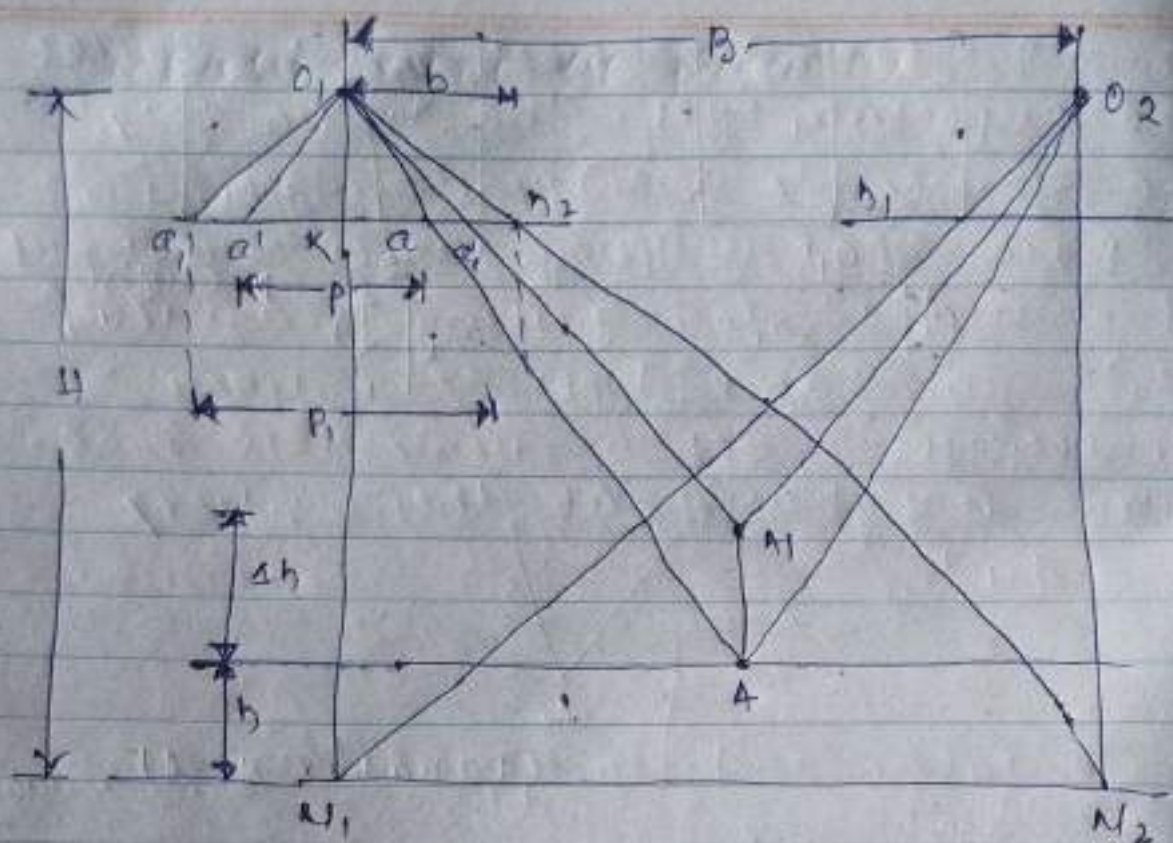 B
O1 b O2
n2 n1
a1' a' K a a1
P
H
P1
A1
Δh
A
h
N1 N2